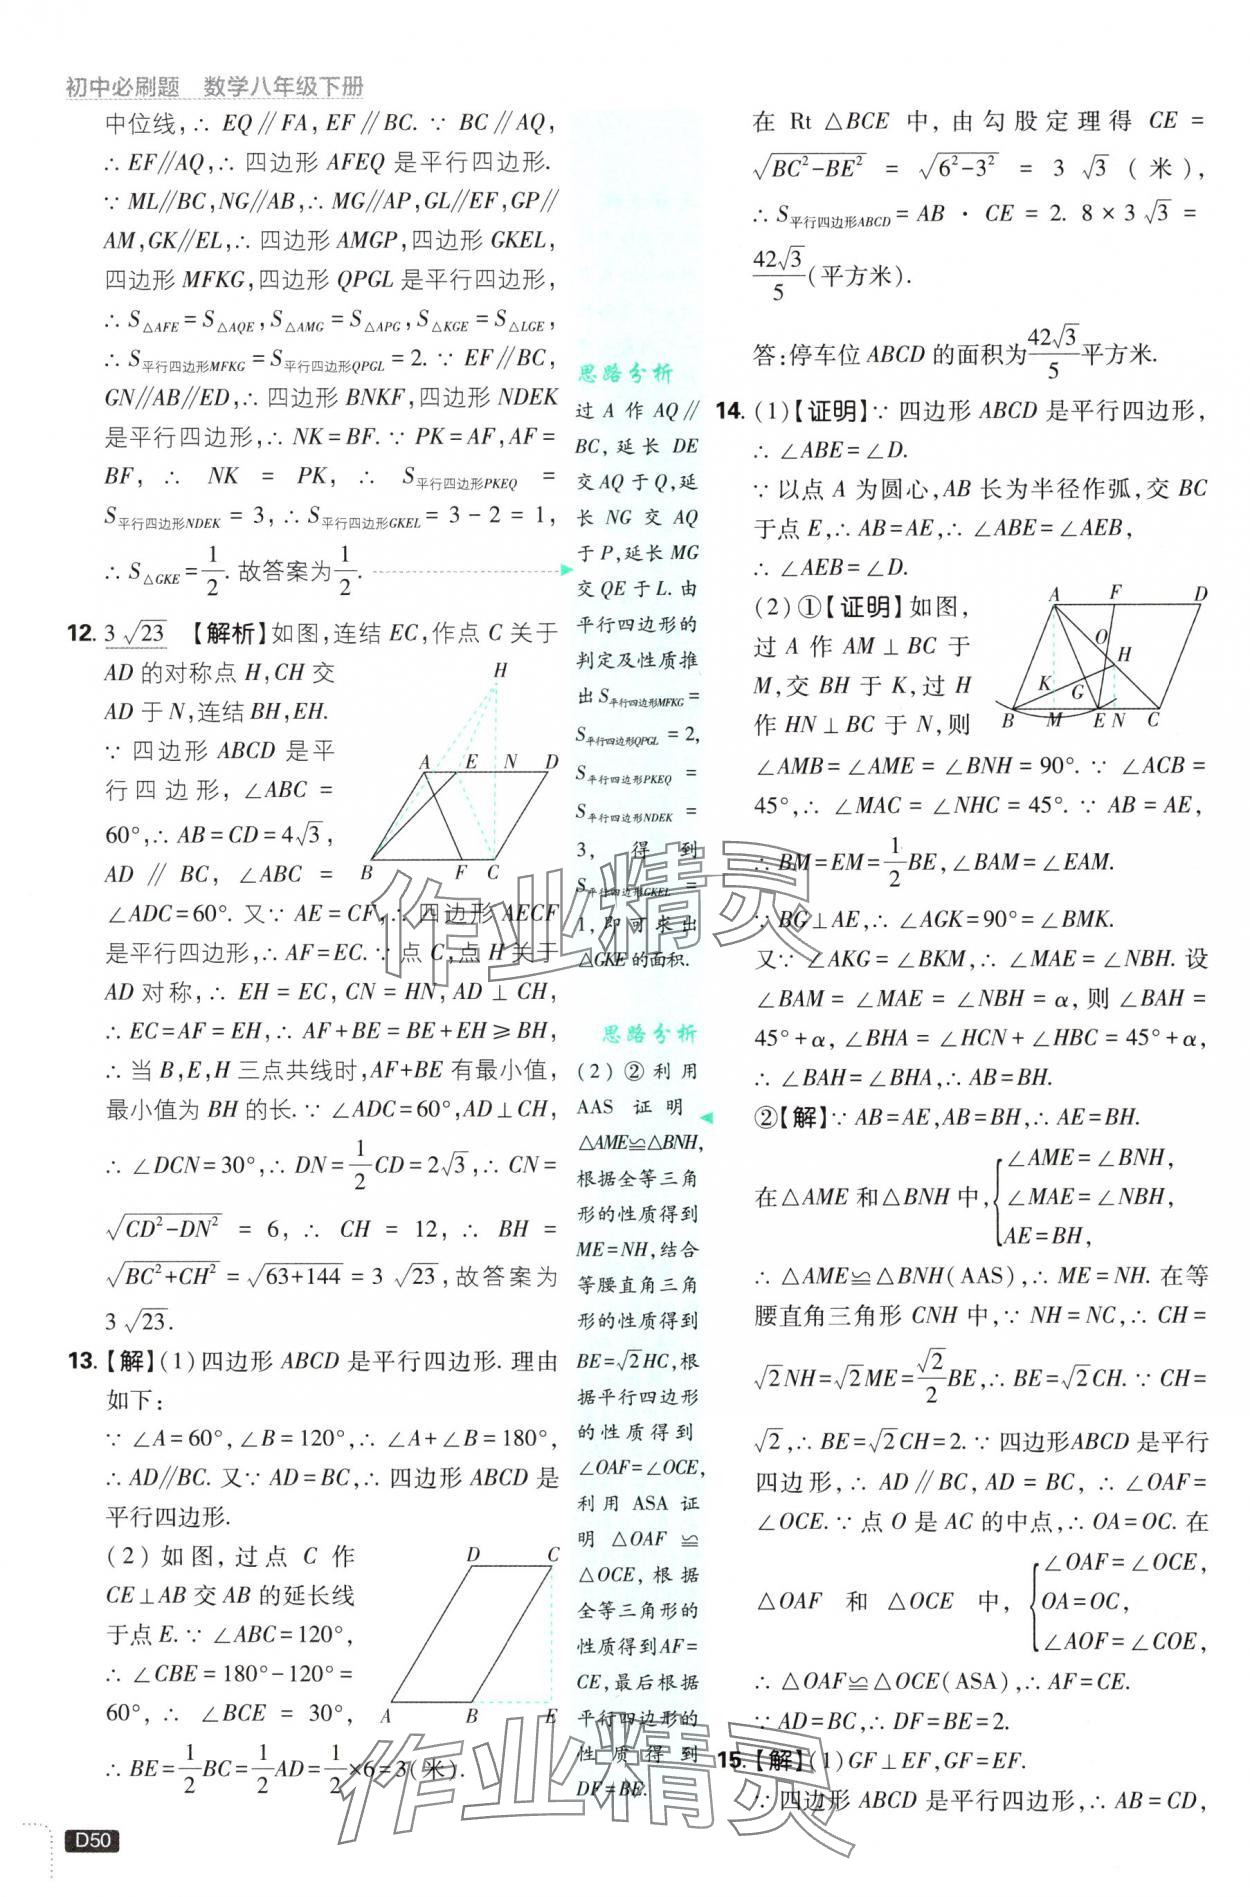 初中必刷题 数学八年级下册
中位线,∴ EQ∥FA,EF∥BC. ∵ BC∥AQ,
∴ EF∥AQ,∴ 四边形 AFEQ 是平行四边形.
∵ ML∥BC,NG∥AB,∴ MG∥AP,GL∥EF,GP∥
AM,GK∥EL,∴ 四边形 AMGP,四边形 GKEL,
四边形 MFKG,四边形 QPGL 是平行四边形,
∴ S△AFE = S△AQE, S△AMG = S△APG, S△KGE = S△LGE,
∴ S平行四边形MFKG = S平行四边形QPGL = 2. ∵ EF∥BC,
GN∥AB∥ED,∴ 四边形 BNKF,四边形 NDEK
是平行四边形,∴ NK=BF. ∵ PK=AF,AF=
BF, ∴ NK = PK, ∴ S平行四边形PKEQ =
S平行四边形NDEK = 3,∴ S平行四边形GKEL = 3-2=1,
∴ S△GKE = 1/2. 故答案为 1/2.
12. 3√23 【解析】如图,连结 EC,作点 C 关于
AD 的对称点 H,CH 交
AD 于 N,连结 BH,EH.
∵ 四边形 ABCD 是平
行四边形, ∠ABC =
60°,∴ AB=CD=4√3,
AD ∥ BC, ∠ABC =
H
A E N D
B F C
∠ADC=60°. 又∵ AE=CF,∴ 四边形 AECF
是平行四边形,∴ AF=EC. ∵ 点 C,点 H 关于
AD 对称,∴ EH=EC,CN=HN,AD⊥CH,
∴ EC=AF=EH,∴ AF+BE=BE+EH≥BH,
∴ 当 B,E,H 三点共线时,AF+BE 有最小值,
最小值为 BH 的长. ∵ ∠ADC=60°,AD⊥CH,
∴ ∠DCN=30°,∴ DN=1/2 CD=2√3,∴ CN=
√(CD²-DN²) = 6, ∴ CH = 12, ∴ BH =
√(BC²+CH²) = √(63+144) = 3√23, 故答案为
3√23.
13. 【解】(1)四边形 ABCD 是平行四边形. 理由
如下:
∵ ∠A=60°,∠B=120°,∴ ∠A+∠B=180°,
∴ AD∥BC. 又∵ AD=BC,∴ 四边形 ABCD 是
平行四边形.
(2) 如图, 过点 C 作
CE⊥AB 交 AB 的延长线
于点 E. ∵ ∠ABC=120°,
∴ ∠CBE=180°-120°=
60°, ∴ ∠BCE = 30°,
D C
A B E
∴ BE=1/2 BC=1/2 AD=1/2×6=3(米).
D50
思路分析
过 A 作 AQ∥
BC,延长 DE
交 AQ 于 Q,延
长 NG 交 AQ
于 P,延长 MG
交 QE 于 L. 由
平行四边形的
判定及性质推
出 S平行四边形MFKG =
S平行四边形QPGL = 2,
S平行四边形PKEQ =
S平行四边形NDEK =
3, 得到
S平行四边形GKEL =
1,即可求出
△GKE 的面积.
思路分析
(2) ②利用
AAS 证明
△AME≌△BNH,
根据全等三角
形的性质得到
ME=NH,结合
等腰直角三角
形的性质得到
BE=√2HC,根
据平行四边形
的性质得到
∠OAF=∠OCE,
利用 ASA 证
明 △OAF ≌
△OCE, 根据
全等三角形的
性质得到AF=
CE,最后根据
平行四边形的
性质得到
DF=BE.
在 Rt △BCE 中,由勾股定理得 CE =
√(BC²-BE²) = √(6²-3²) = 3√3 (米),
∴ S平行四边形ABCD = AB · CE = 2. 8×3√3 =
42√3/5 (平方米).
答:停车位 ABCD 的面积为 42√3/5 平方米.
14. (1)【证明】∵ 四边形 ABCD 是平行四边形,
∴ ∠ABE=∠D.
∵ 以点 A 为圆心,AB 长为半径作弧,交 BC
于点 E,∴ AB=AE,∴ ∠ABE=∠AEB,
∴ ∠AEB=∠D.
(2) ①【证明】如图,
过 A 作 AM⊥BC 于
M,交 BH 于 K,过 H
作 HN⊥BC 于 N,则
A F D
O H
K G
B M E N C
∠AMB=∠AME=∠BNH=90°. ∵ ∠ACB=
45°,∴ ∠MAC=∠NHC=45°. ∵ AB=AE,
∴ BM=EM=1/2 BE,∠BAM=∠EAM.
∵ BG⊥AE,∴ ∠AGK=90°=∠BMK.
又∵ ∠AKG=∠BKM,∴ ∠MAE=∠NBH. 设
∠BAM=∠MAE=∠NBH=α,则∠BAH=
45°+α,∠BHA=∠HCN+∠HBC=45°+α,
∴ ∠BAH=∠BHA,∴ AB=BH.
②【解】∵ AB=AE,AB=BH,∴ AE=BH.
在△AME 和△BNH 中, { ∠AME=∠BNH,
∠MAE=∠NBH,
AE=BH,
∴ △AME≌△BNH(AAS),∴ ME=NH. 在等
腰直角三角形 CNH 中,∵ NH=NC,∴ CH=
√2NH=√2ME=√2/2 BE,∴ BE=√2CH. ∵ CH=
√2,∴ BE=√2CH=2. ∵ 四边形ABCD 是平行
四边形,∴ AD∥BC,AD=BC,∴ ∠OAF=
∠OCE. ∵ 点 O 是 AC 的中点,∴ OA=OC. 在
△OAF 和 △OCE 中, { ∠OAF=∠OCE,
OA=OC,
∠AOF=∠COE,
∴ △OAF≌△OCE(ASA),∴ AF=CE.
∵ AD=BC,∴ DF=BE=2.
15. 【解】(1)GF⊥EF,GF=EF.
∵ 四边形 ABCD 是平行四边形,∴ AB=CD,
作业精灵
作业精灵